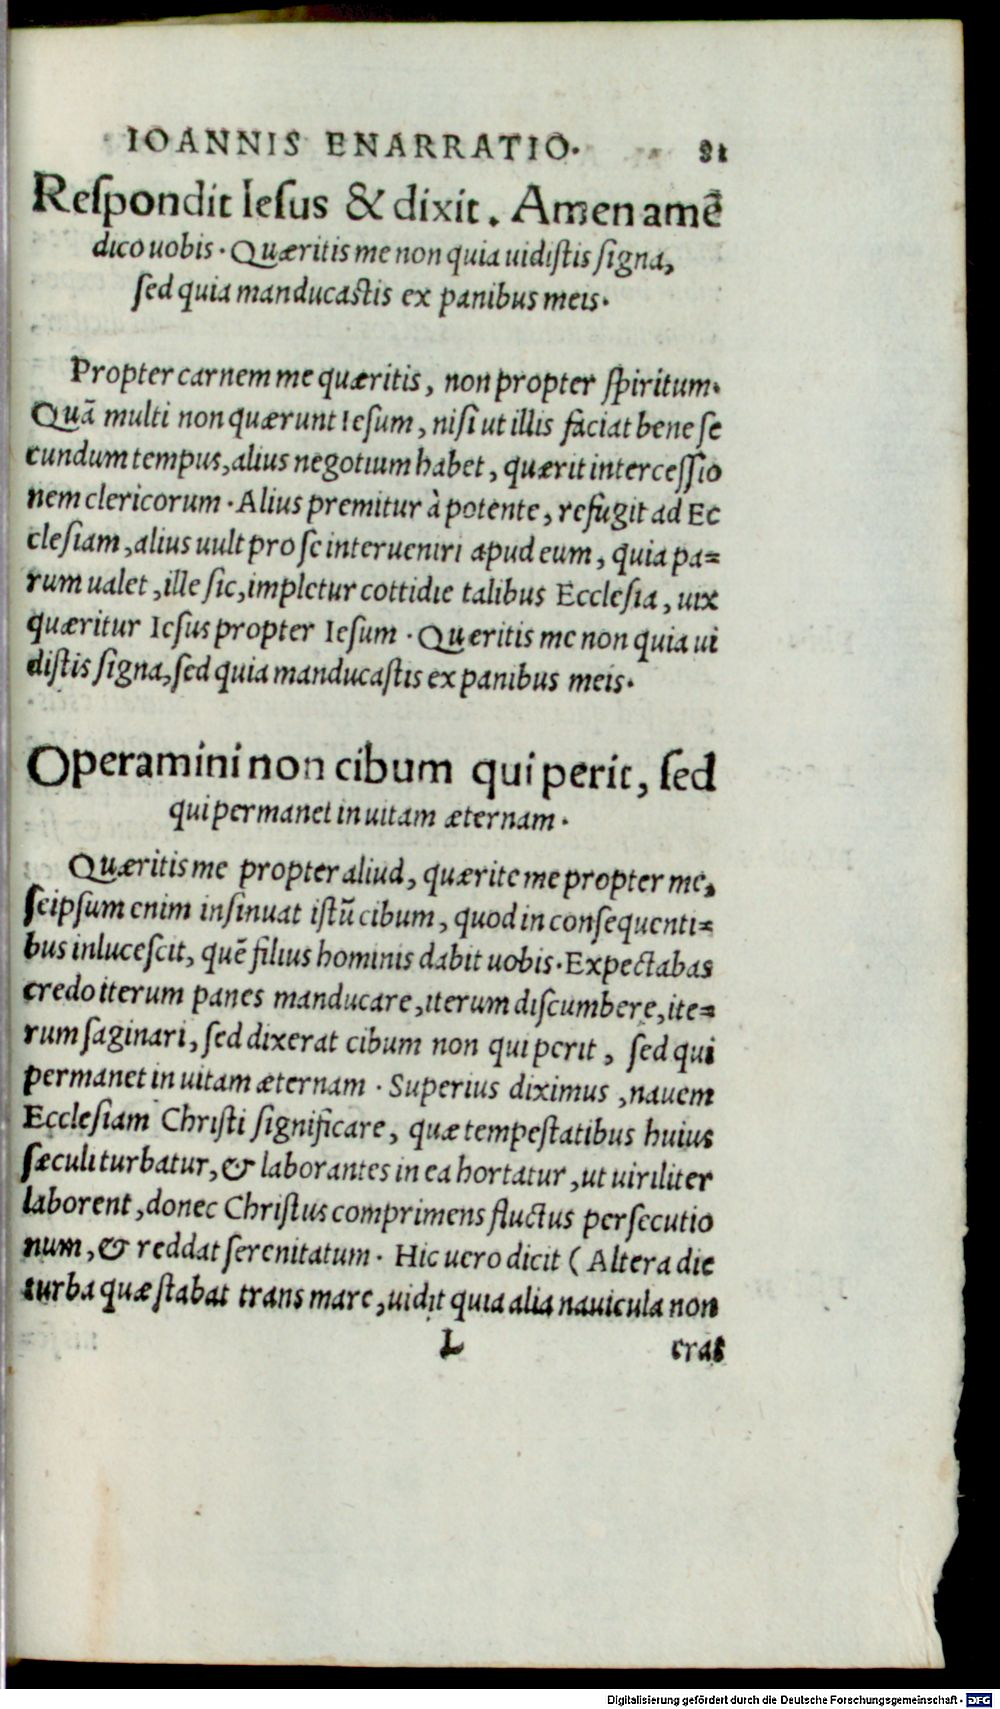 IOANNIS ENARRATIO. 81
Reſpondit Ieſus & dixit. Amen amē
dico uobis. Quæritis me non quia uidiſtis ſigna,
ſed quia manducaſtis ex panibus meis.
Propter carnem me quæritis, non propter ſpiritum.
Quā multi non quærunt Ieſum, niſi ut illis faciat bene ſe
cundum tempus, alius negotium habet, quærit interceſſio
nem clericorum. Alius premitur à potente, refugit ad Ec
cleſiam, alius uult pro ſe interueniri apud eum, quia pa=
rum ualet, ille ſic, impletur cottidie talibus Eccleſia, uix
quæritur Ieſus propter Ieſum. Quæritis me non quia ui
diſtis ſigna, ſed quia manducaſtis ex panibus meis.
Operamini non cibum qui perit, ſed
qui permanet in uitam æternam.
Quæritis me propter aliud, quærite me propter me,
ſeipſum enim inſinuat iſtū cibum, quod in conſequenti=
bus inluceſcit, quē filius hominis dabit uobis. Expectabas
credo iterum panes manducare, iterum diſcumbere, ite=
rum ſaginari, ſed dixerat cibum non qui perit, ſed qui
permanet in uitam æternam. Superius diximus, nauem
Eccleſiam Chriſti ſignificare, quæ tempeſtatibus huius
ſæculi turbatur, & laborantes in ea hortatur, ut uiriliter
laborent, donec Chriſtus comprimens fluctus perſecutio
num, & reddat ſerenitatum. Hic uero dicit (Altera die
turba quæ ſtabat trans mare, uidit quia alia nauicula non
L eras
Digitalisierung gefördert durch die Deutsche Forschungsgemeinschaft - DFG